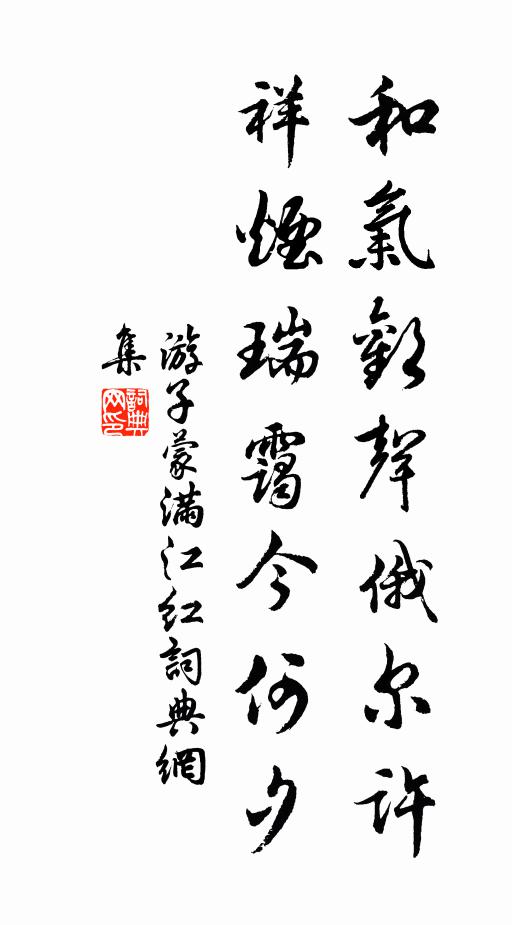 和氣歡聲俄尔許
祥煙瑞靄今何夕
游子蒙滿江红詞典網
集
詞典网印